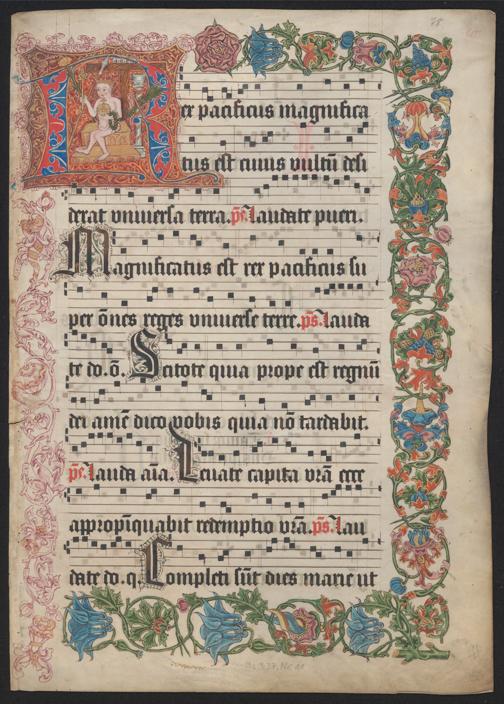 Rex pacificus magnifica
tus est cuius vultū desi
derat vniuersa terra. p̄s. laudate pueri.
Magnificatus est rex pacificus su
per ōnes reges vniuerse terre. p̄s. lauda
te do. ō. Scitote quia prope est regnū
dei amē dico vobis quia nō tardabit.
p̄s. lauda aīa. Leuate capita vrā ecce
appropīquabit redemptio vrā. p̄s. lau
date do. q. Completi sūt dies marie ut